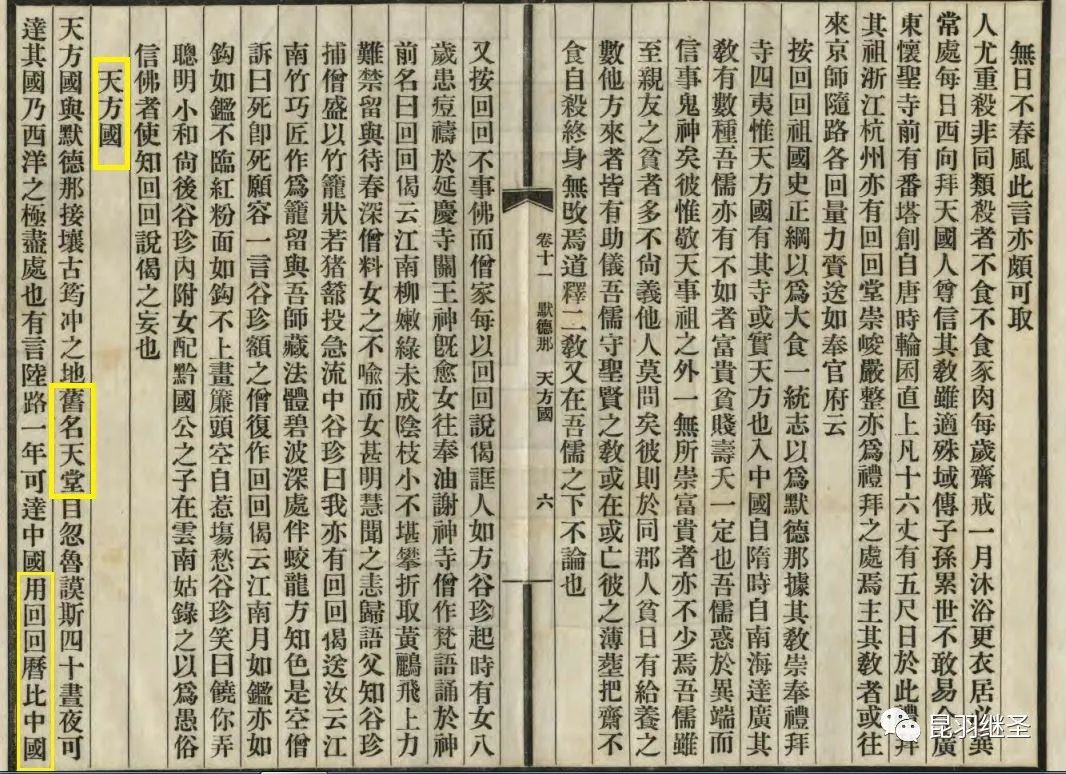 無日不春風此言亦頗可取
人尤重殺非同類殺者不食不食豕肉每歲齋戒一月沐浴更衣居必異
常處每日西向拜天國人尊信其教雖適殊域傳子孫累世不敢易今廣
東懷聖寺前有番塔創自唐時輪囷直上凡十六丈有五尺日於此禮拜
其祖浙江杭州亦有回回堂崇峻嚴整亦爲禮拜之處焉主其教者或往
來京師隨路各回量力賫送如奉官府云
按回回祖國史正綱以爲大食一統志以爲默德那據其教崇奉禮拜
寺四夷惟天方國有其寺或實天方也入中國自隋時自南海達廣其
教有數種吾儒亦有不如者富貴貧賤壽夭一定也吾儒惑於異端而
信事鬼神矣彼惟敬天事祖之外一無所崇富貴者亦不少焉吾儒雖
至親友之貧者多不尚義他人莫問矣彼則於同郡人貧日有給養之
數他方來者皆有助儀吾儒守聖賢之教或在或亡彼之薄塟把齋不
食自殺終身無改焉道釋二教又在吾儒之下不論也
卷十一 默德那 天方國 六
又按回回不事佛而僧家每以回回說偈誑人如方谷珍起時有女八
歲患痘禱於延慶寺關王神旣愈女往奉油謝神寺僧作梵語誦於神
前名曰回回偈云江南柳嫩綠未成陰枝小不堪攀折取黃鸝飛上力
難禁留與待春深僧料女之不喻而女甚明慧聞之恚歸語父知谷珍
捕僧盛以竹籠狀若猪篰投急流中谷珍曰我亦有回回偈送汝云江
南竹巧匠作爲籠留與吾師藏法體碧波深處伴蛟龍方知色是空僧
訴曰死卽死願容一言谷珍額之僧復作回回偈云江南月如鑑亦如
鈎如鑑不臨紅粉面如鈎不上畫簾頭空自惹塲愁谷珍笑曰饒你弄
聰明小和尚後谷珍內附女配黔國公之子在雲南姑錄之以爲愚俗
信佛者使知回回說偈之妄也
天方國
天方國與默德那接壤古筠冲之地舊名天堂自忽魯謨斯四十晝夜可
達其國乃西洋之極盡處也有言陸路一年可達中國用回回曆比中國
昆羽继圣